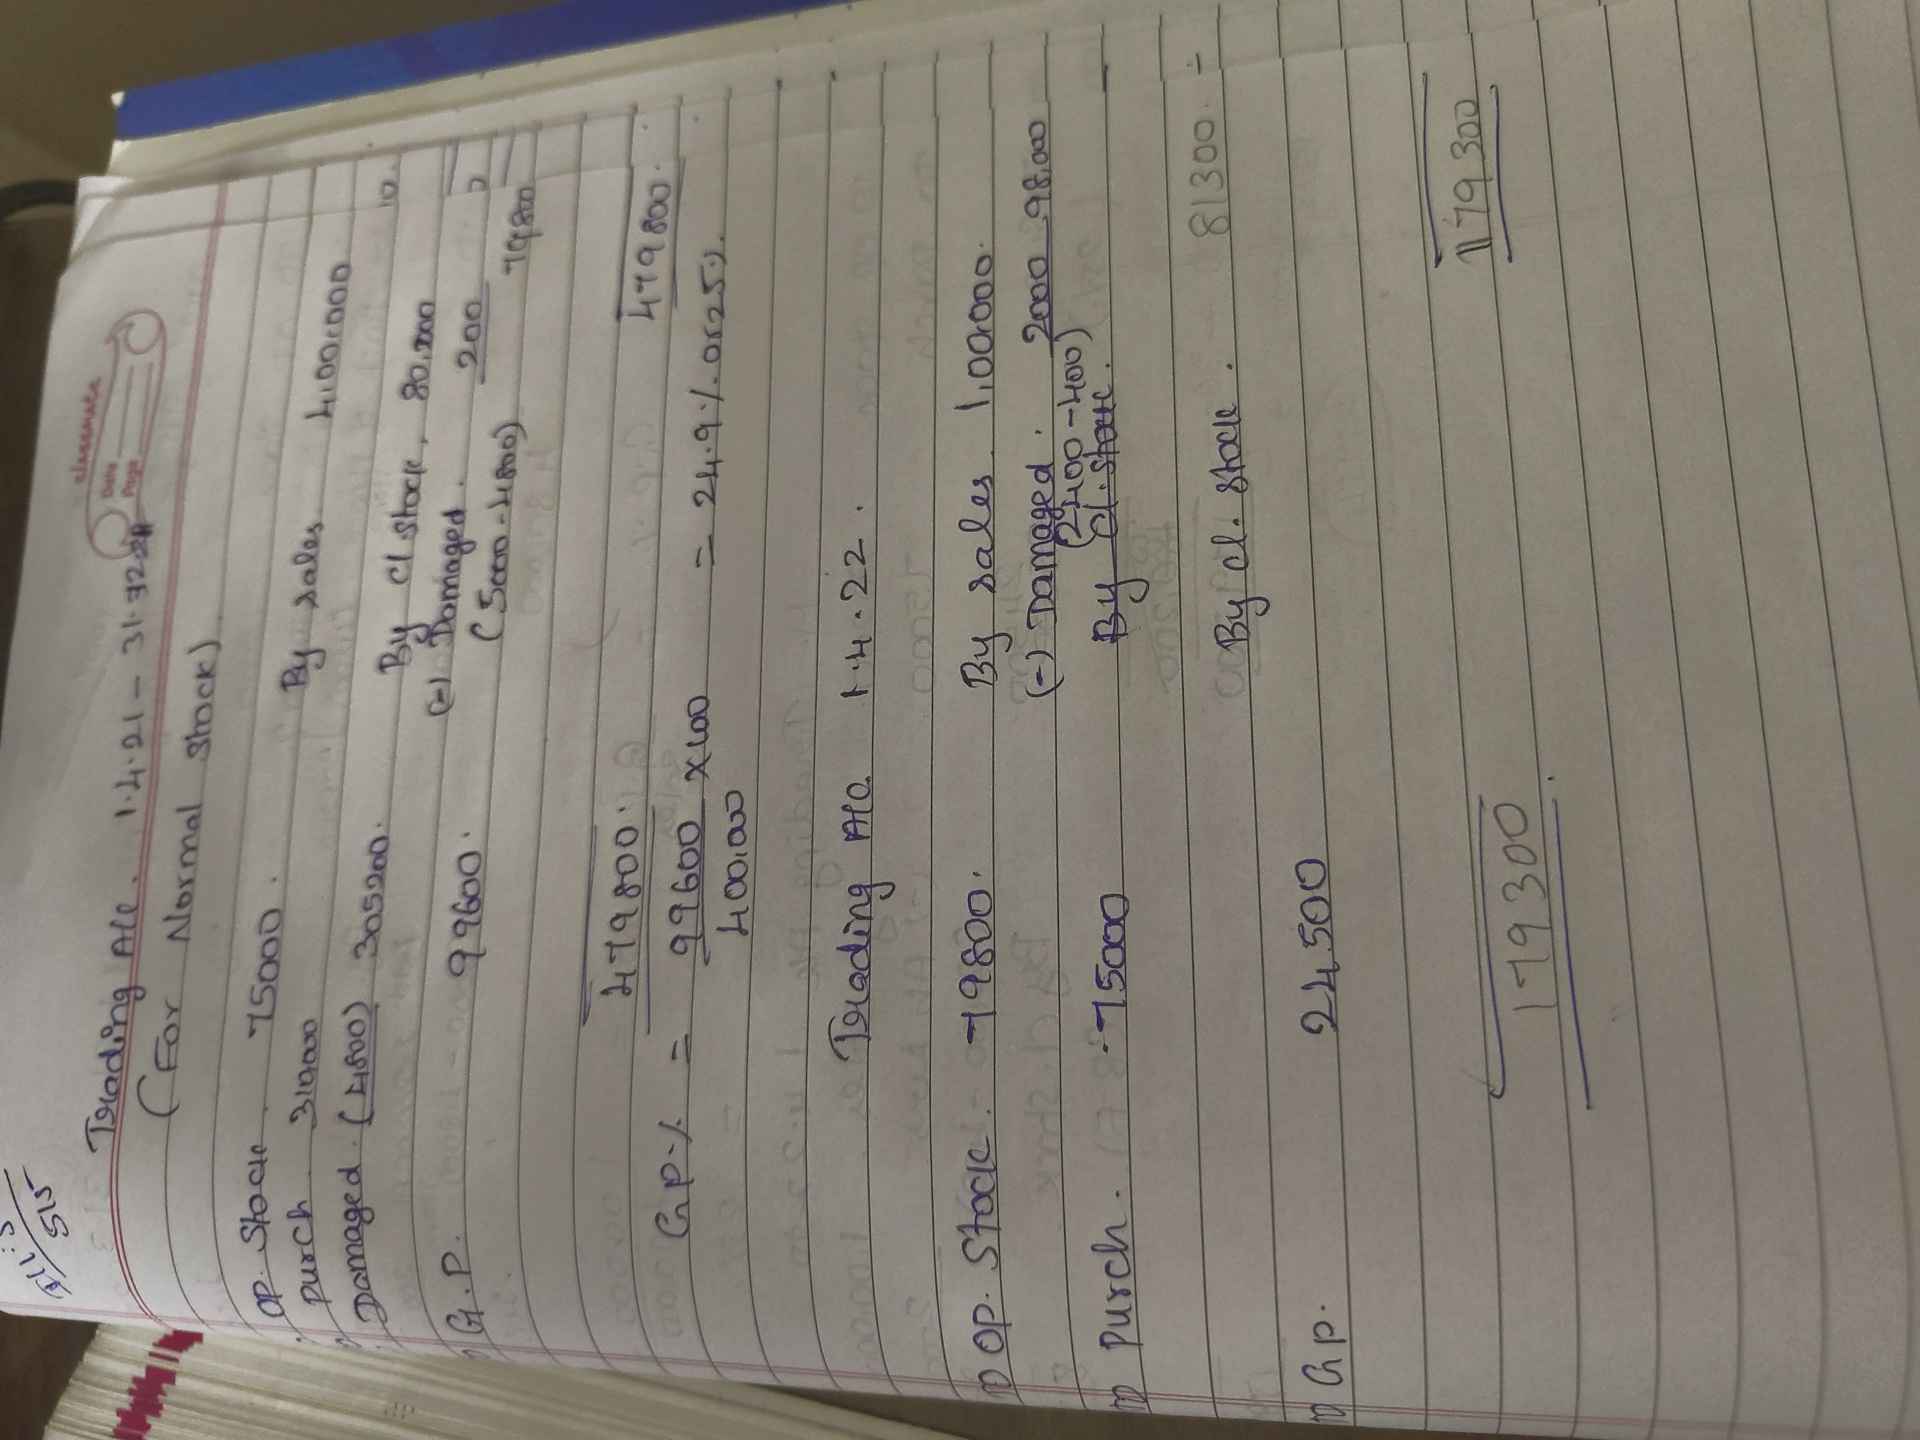 Ill: 5
515
classmate
Date
Page
Trading A/c. 1.4.21 - 31.3.22
(For Normal Stock)
OP. Stock 75000. By sales 4,00,000
Purch 310000
Damaged (4800) 305200. By cl stock, 80,000
(-) Damaged. 200
G.P. 99600. (5000-4800) 79800
479800. 479800.
G.P.% = 99600 x 100 = 24.9% or 25%.
400,000
Trading A/c. 1.4.22.
OP. Stock. 79800. By sales 1,00,000.
(-) Damaged. 2000 98,000
(2400-400)
Purch. 75000 By cl. stock.
81300.
By cl. stock.
G.P. 24,500
179300 179300